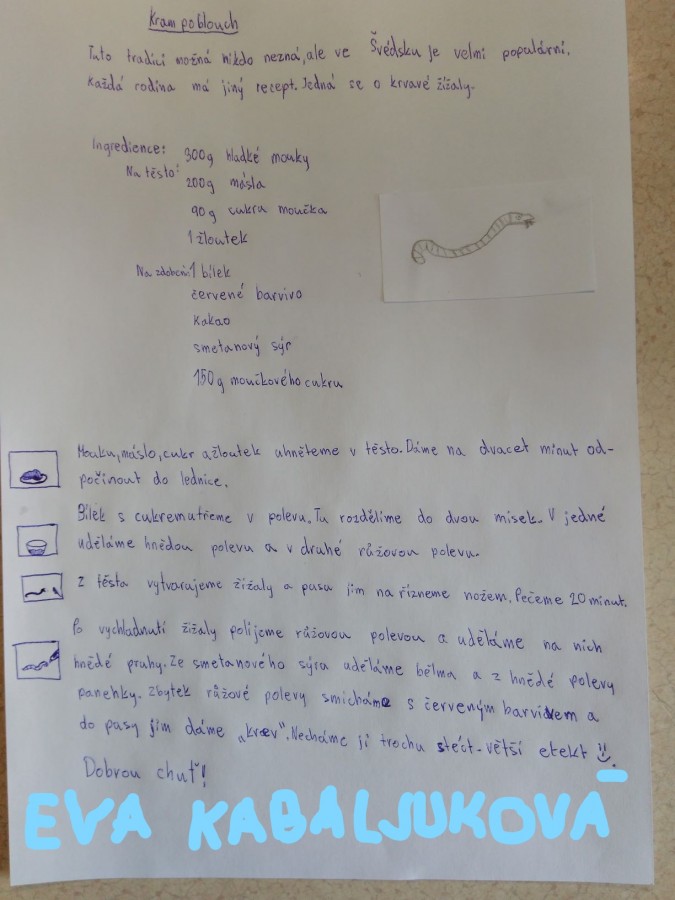 Kram poblouch
Tuto tradici možná nikdo nezná, ale ve Švédsku je velmi populární.
Každá rodina má jiný recept. Jedná se o krvavé žížaly.
Ingredience: 300g hladké mouky
Na těsto: 200g másla
90g cukru moučka
1 žloutek
Na zdobení: 1 bílek
červené barvivo
kakao
smetanový sýr
150g moučkového cukru
Mouku, máslo, cukr a žloutek uhněteme v těsto. Dáme na dvacet minut od-
počinout do lednice.
Bílek s cukrem utřeme v polevu. Tu rozdělíme do dvou misek. V jedné
uděláme hnědou polevu a v druhé růžovou polevu.
Z těsta vytvarujeme žížaly a pusu jim nařízneme nožem. Pečeme 20 minut.
Po vychladnutí žížaly polijeme růžovou polevou a uděláme na nich
hnědé pruhy. Ze smetanového sýra uděláme bělma a z hnědé polevy
panenky. Zbytek růžové polevy smícháme s červeným barvivem a
do pusy jim dáme „krev“. Necháme ji trochu stéct - větší efekt
Dobrou chuť!
EVA KABALJUKOVÁ